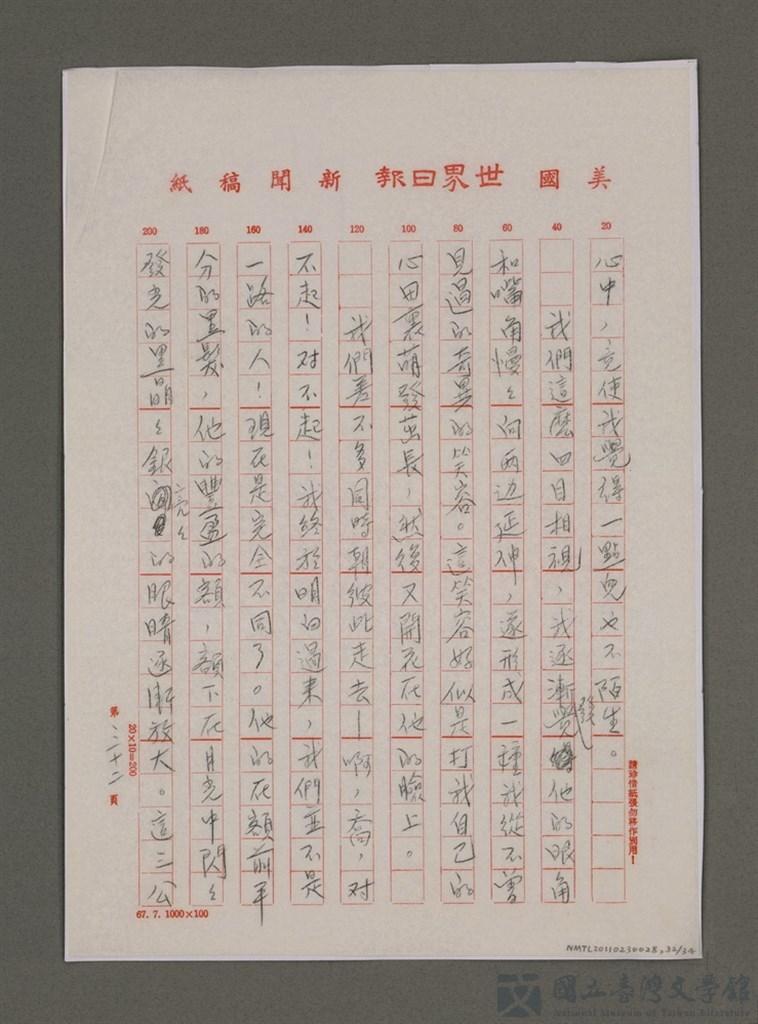 美國世界日報新聞稿紙
20
40
60
80
100
120
140
160
180
200
心中，竞使我覺得一點兒也不陌生。
我們這麼四目相視，我逐漸發覺他的眼角
和嘴角慢々向两边延伸，遂形成一種我從不曾
見過的奇異的笑容。這笑容好似是打我自己的
心田裏萌發茁長，然後又開花在他的臉上。
我們差不多同時朝彼此走去—啊，喬，对
不起！对不起！我終於明白過来，我們並不是
一路的人！現在是完全不同了。他的在額前平
分的黑髮，他的豐盈的額，額下在月光中閃々
發光的黑晶々銀亮々的眼睛逐漸放大。這三公
請珍惜紙張勿將作別用！
20×10=200
第三十二頁
67. 7. 1000×100
NMTL20110230028, 32/34
國立臺灣文學館
National Museum of Taiwan Literature